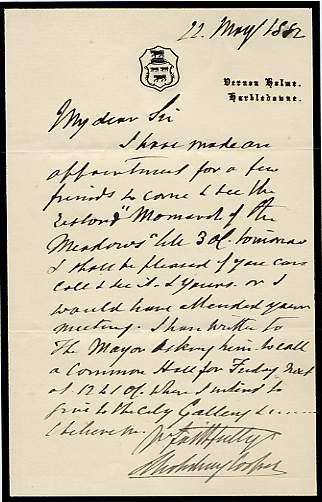 22 May 1882
Vernon Holme.
Harbledowne.
My dear Sir
I have made an
appointment for a few
friends to come & see the
"Monarch of the
Meadows" 3 o'c. tomorrow
I shall be pleased if you can
call & see it. & yours. or I
would have attended your
meeting. I have written to
The Mayor asking him to call
a Common Hall for Friday next
at 12 o'c. when I intend to
give to the City Gallery &c
believe me
Yrs faithfully
T Sidney Cooper